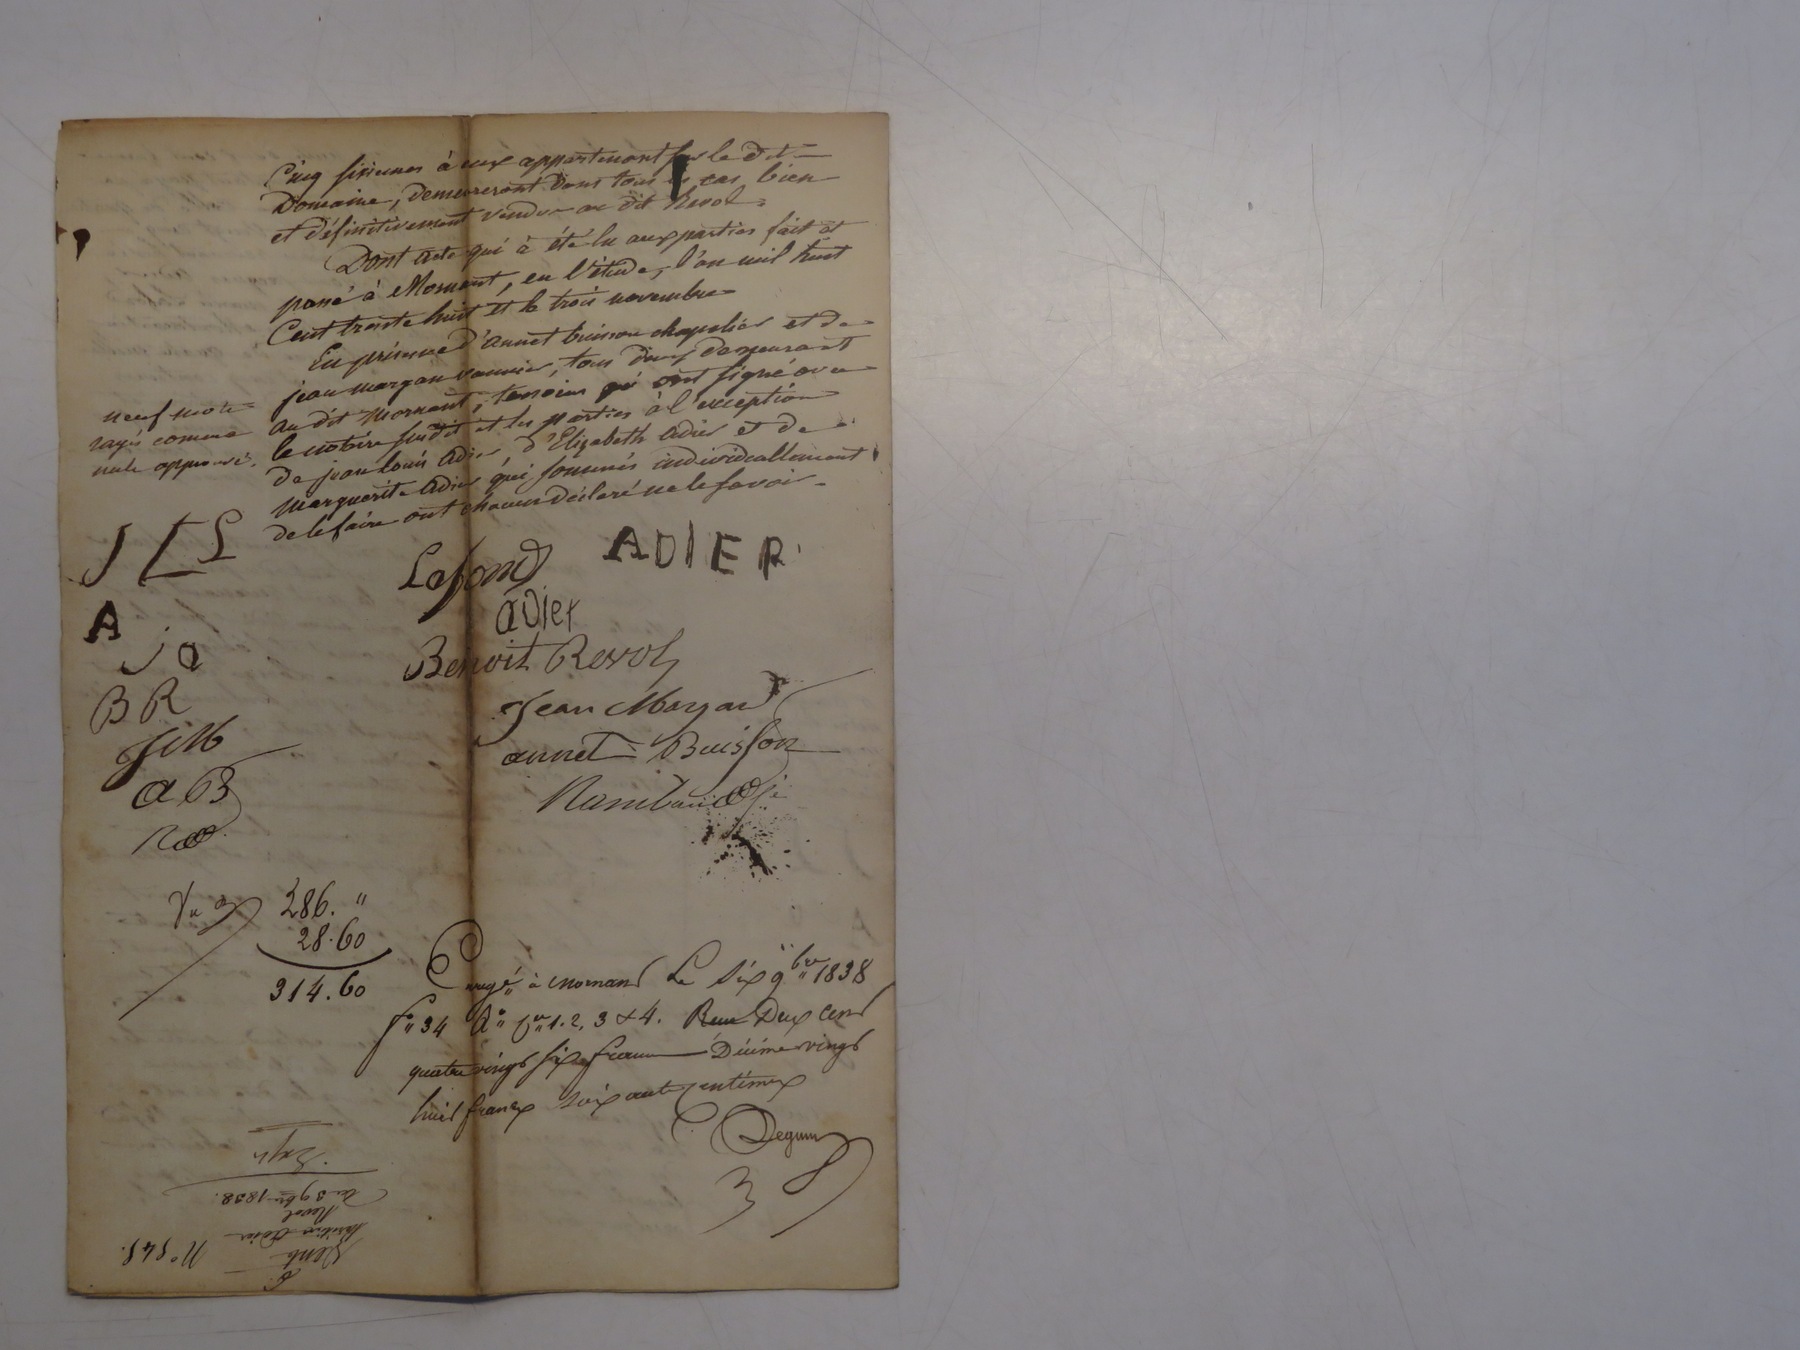 Cinq sixiemes à eux appartenant sur le dit
Domaine, demeureront dans tous les cas bien
et définitivement vendus au dit Revol.
Dont acte qui à été lu aux parties fait et
passé à Mornant, en l'étude, l'an mil huit
Cent trente huit et le trois novembre
En présence d'annet buisson chapelier et de
jean margan vannier, tous deux demeurant
au dit Mornant, temoins qui ont signé avec
le notaire susdit et les parties à l'exception
de jean louis adier, d'Elizabeth adier et de
Marguerite adier qui sommés individuellement
de le faire ont chacun déclaré ne le savoir.
neuf mots
rayés comme
nuls approuvés.
J L L
Lafond
ADIER
A
adier
j a
Benoit Revol
B R
Jean Margan
J M
annet Buisson
a B
Vu
286. "
28.60
314.60
Enregé à Mornant Le Six 9bre 1838
fo 34 Ro Ces 1. 2. 3 & 4. Reçu Deux Cent
quatre vingt six francs Décime vingt
huit francs soixante centimes
38
Expn
du 3 9bre 1838.
Revol
adier
Vente
No 545.